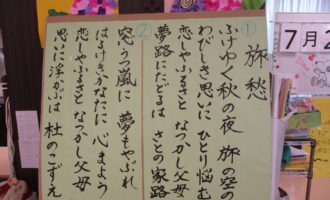 ① 旅愁
ふけゆく秋の夜 旅の空の
わびしき思いに ひとり悩む
恋しやふるさと なつかし父母
夢路にたどるは さとの家路
② 窓うつ嵐に 夢もやぶれ
はるけきかなたに 心まよう
恋しやふるさと なつかし父母
思いに浮かぶは 杜のこずえ
7月2